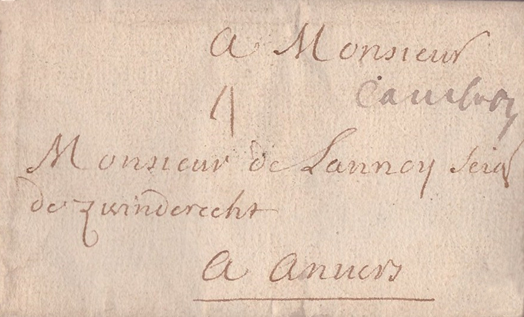 A Monsieur
Cambray
4
Monsieur de Lannoy seigr
de zwinderecht
A Anvers